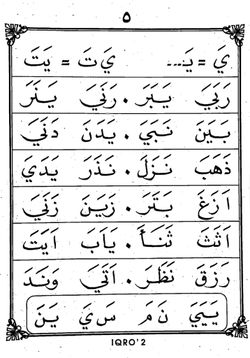 ٥
يَ = يَـ... يَ تَ = يَتَ
رَبَيَ يَبَرَ . رَنَيَ يَنَرَ
بَيَنَ نَبَيَ . يَدَنَ دَنَيَ
ذَهَبَ نَزَلَ . نَذَرَ يَدَيَ
اَزَغَ بَتَرَ . زَيَنَ زَنَيَ
اَثَثَ ثَنَأَ . يَابَ اَيَتَ
رَزَقَ نَظَرَ . اَتَيَ وَنَدَ
يَيَيَ نَ مَ سَ يَ يَنَ
IQRO' 2